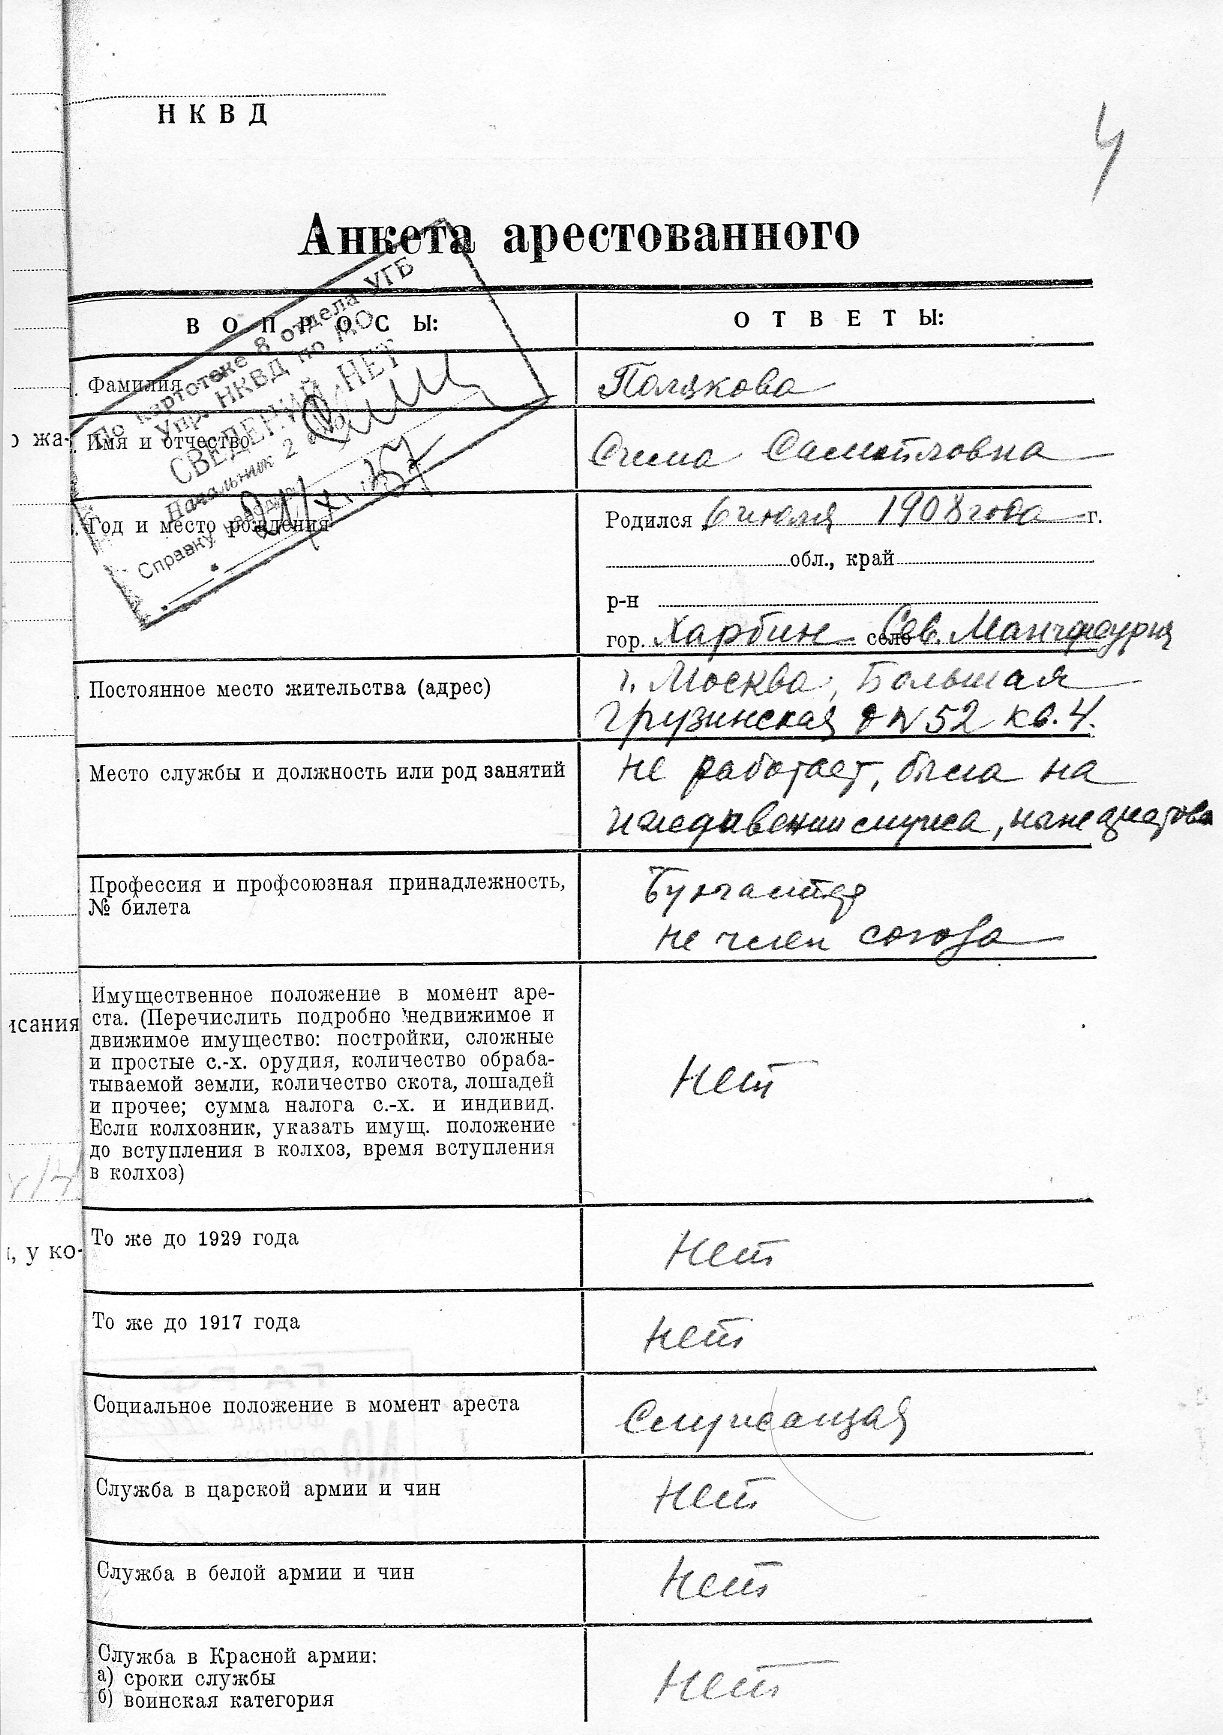 НКВД
4
Анкета арестованного
ВОПРОСЫ:
ОТВЕТЫ:
По картотеке 8 отдела УГБ
Упр. НКВД по МО
СВЕДЕНИЙ НЕТ
Начальник 2
Справку наводил
21/X 37
Фамилия
Полякова
о жа-
Имя и отчество
Сима Самойловна
Год и место рождения
Родился 6 июля 1908 года г.
обл., край
р-н
гор. Харбин село Сев. Манчжурия
Постоянное место жительства (адрес)
г. Москва, Большая
Грузинская д N 52 кв. 4.
Место службы и должность или род занятий
не работает, была на
иждивении мужа, ныне арестова
Профессия и профсоюзная принадлежность,
№ билета
Бухгалтер
не член союза
исания
Имущественное положение в момент аре-
ста. (Перечислить подробно недвижимое и
движимое имущество: постройки, сложные
и простые с.-х. орудия, количество обраба-
тываемой земли, количество скота, лошадей
и прочее; сумма налога с.-х. и индивид.
Если колхозник, указать имущ. положение
до вступления в колхоз, время вступления
в колхоз)
Нет
, у ко-
То же до 1929 года
Нет
То же до 1917 года
Нет
Социальное положение в момент ареста
Служащая
Служба в царской армии и чин
Нет
Служба в белой армии и чин
Нет
Служба в Красной армии:
а) сроки службы
б) воинская категория
Нет